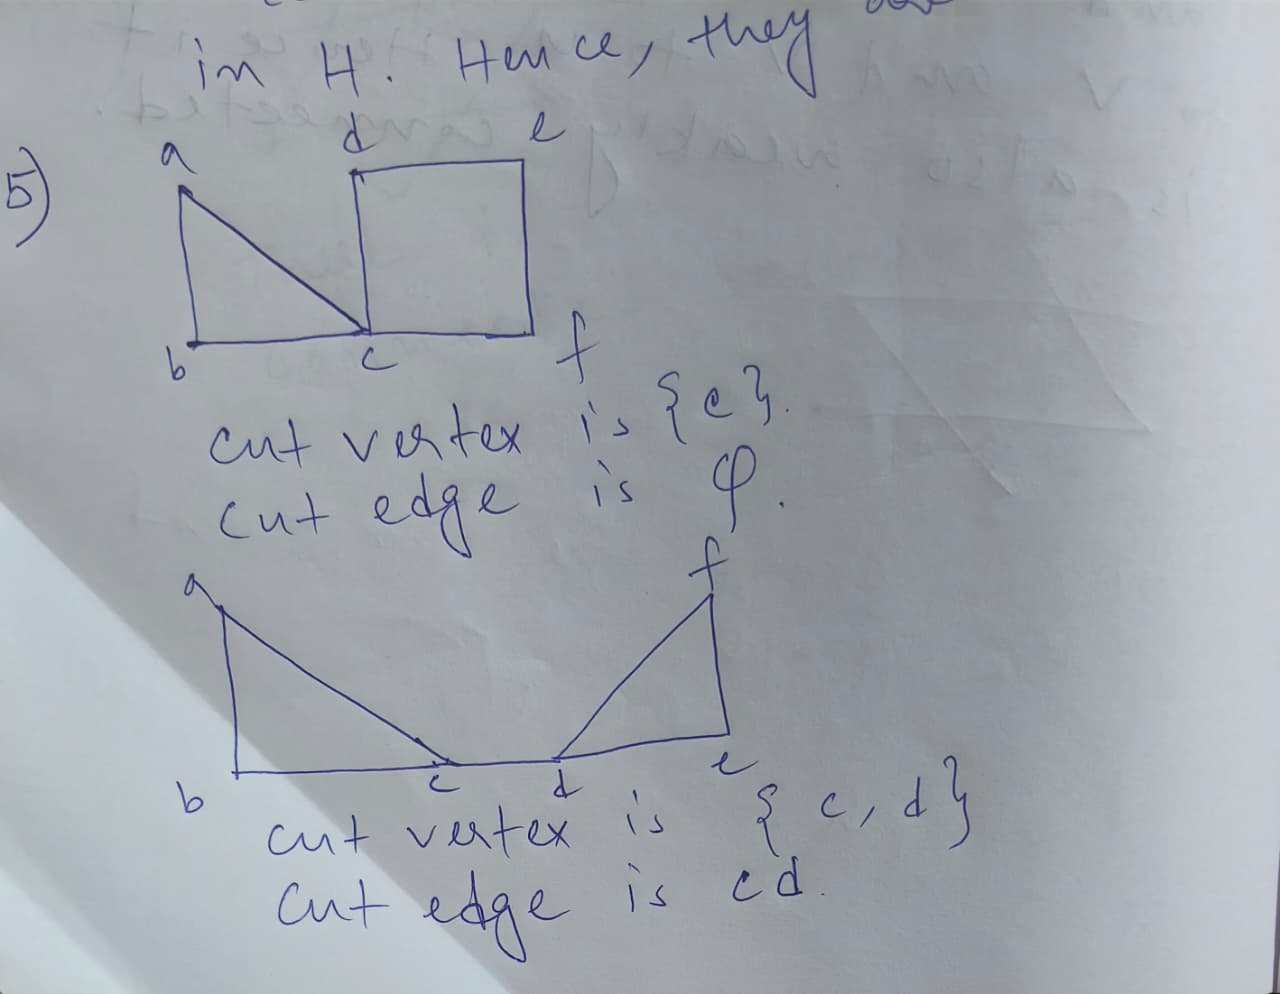 in H. Hence, they
5)
a d e
b c f
cut vertex is {c}.
cut edge is φ.
a f
b c d e
cut vertex is {c, d}
cut edge is cd.